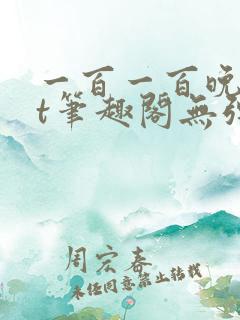 一百一百晚
t筆趣閣無
周宏春
未经同意禁止转载